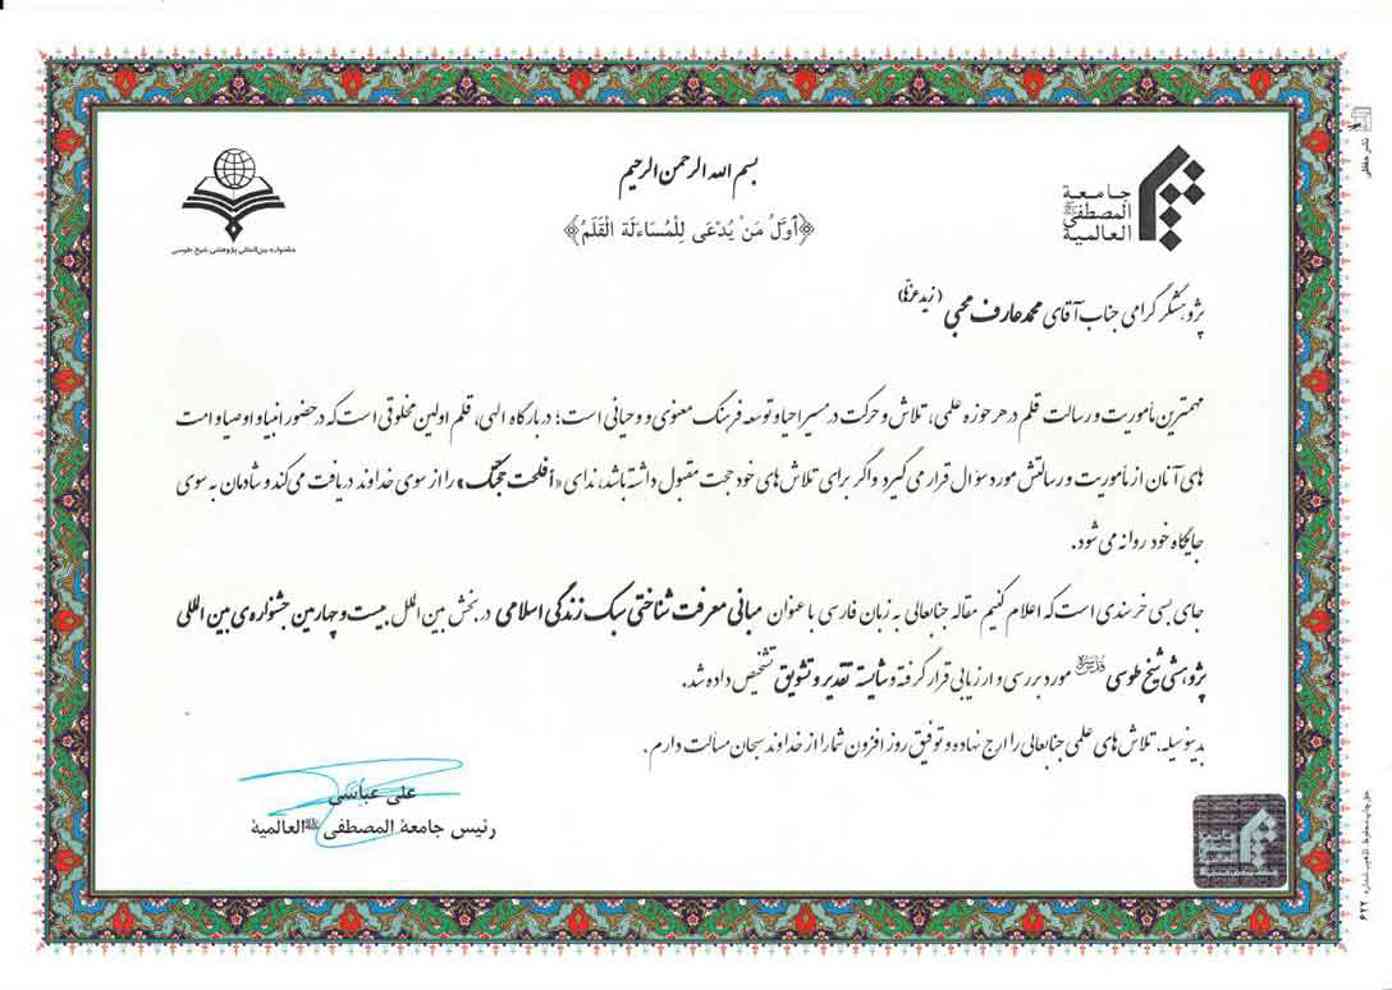 بسم الله الرحمن الرحیم
﴿أوَّلُ مَنْ یُدْعَی لِلْمُسَاءَلَة الْقَلَمُ﴾
جامعة
المصطفی ﷺ
العالمیة
جشنواره بین‌المللی پژوهشی شیخ طوسی
پژوهشگر گرامی جناب آقای محمد عارف محبی (زید عزّه)
مهمترین مأموریت و رسالت قلم در هر حوزه علمی، تلاش و حرکت در مسیر احیا و توسعه فرهنگ معنوی و وحیانی است؛ در بارگاه الهی، قلم اولین مخلوقی است که در حضور انبیا و اوصیا و امت
های آنان از مأموریت و رسالتش مورد سؤال قرار می گیرد و اگر برای تلاش های خود حجت مقبول داشته باشد، ندای «أفلحت حجتک» را از سوی خداوند دریافت می کند و شادمان به سوی
جایگاه خود روانه می شود.
جای بسی خرسندی است که اعلام کنیم مقاله جنابعالی به زبان فارسی با عنوان مبانی معرفت شناختی سبک زندگی اسلامی در بخش بین الملل بیست و چهارمین جشنواره‌ی بین المللی
پژوهشی شیخ طوسی قدس سره مورد بررسی و ارزیابی قرار گرفته و شایسته تقدیر و تشویق تشخیص داده شد.
بدینوسیله، تلاش های علمی جنابعالی را ارج نهاده و توفیق روز افزون شما را از خداوند سبحان مسألت دارم.
علی عباسی
رئیس جامعة المصطفی ﷺ العالمیة